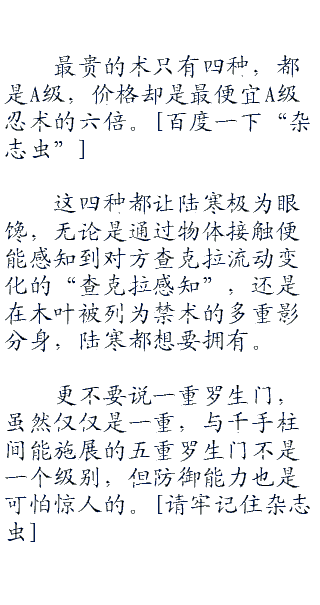 最贵的术只有四种，都
是A级，价格却是最便宜A级
忍术的六倍。[百度一下“杂
志虫”]
这四种都让陆寒极为眼
馋，无论是通过物体接触便
能感知到对方查克拉流动变
化的“查克拉感知”，还是
在木叶被列为禁术的多重影
分身，陆寒都想要拥有。
更不要说一重罗生门，
虽然仅仅是一重，与千手柱
间能施展的五重罗生门不是
一个级别，但防御能力也是
可怕惊人的。[请牢记住杂志
虫]